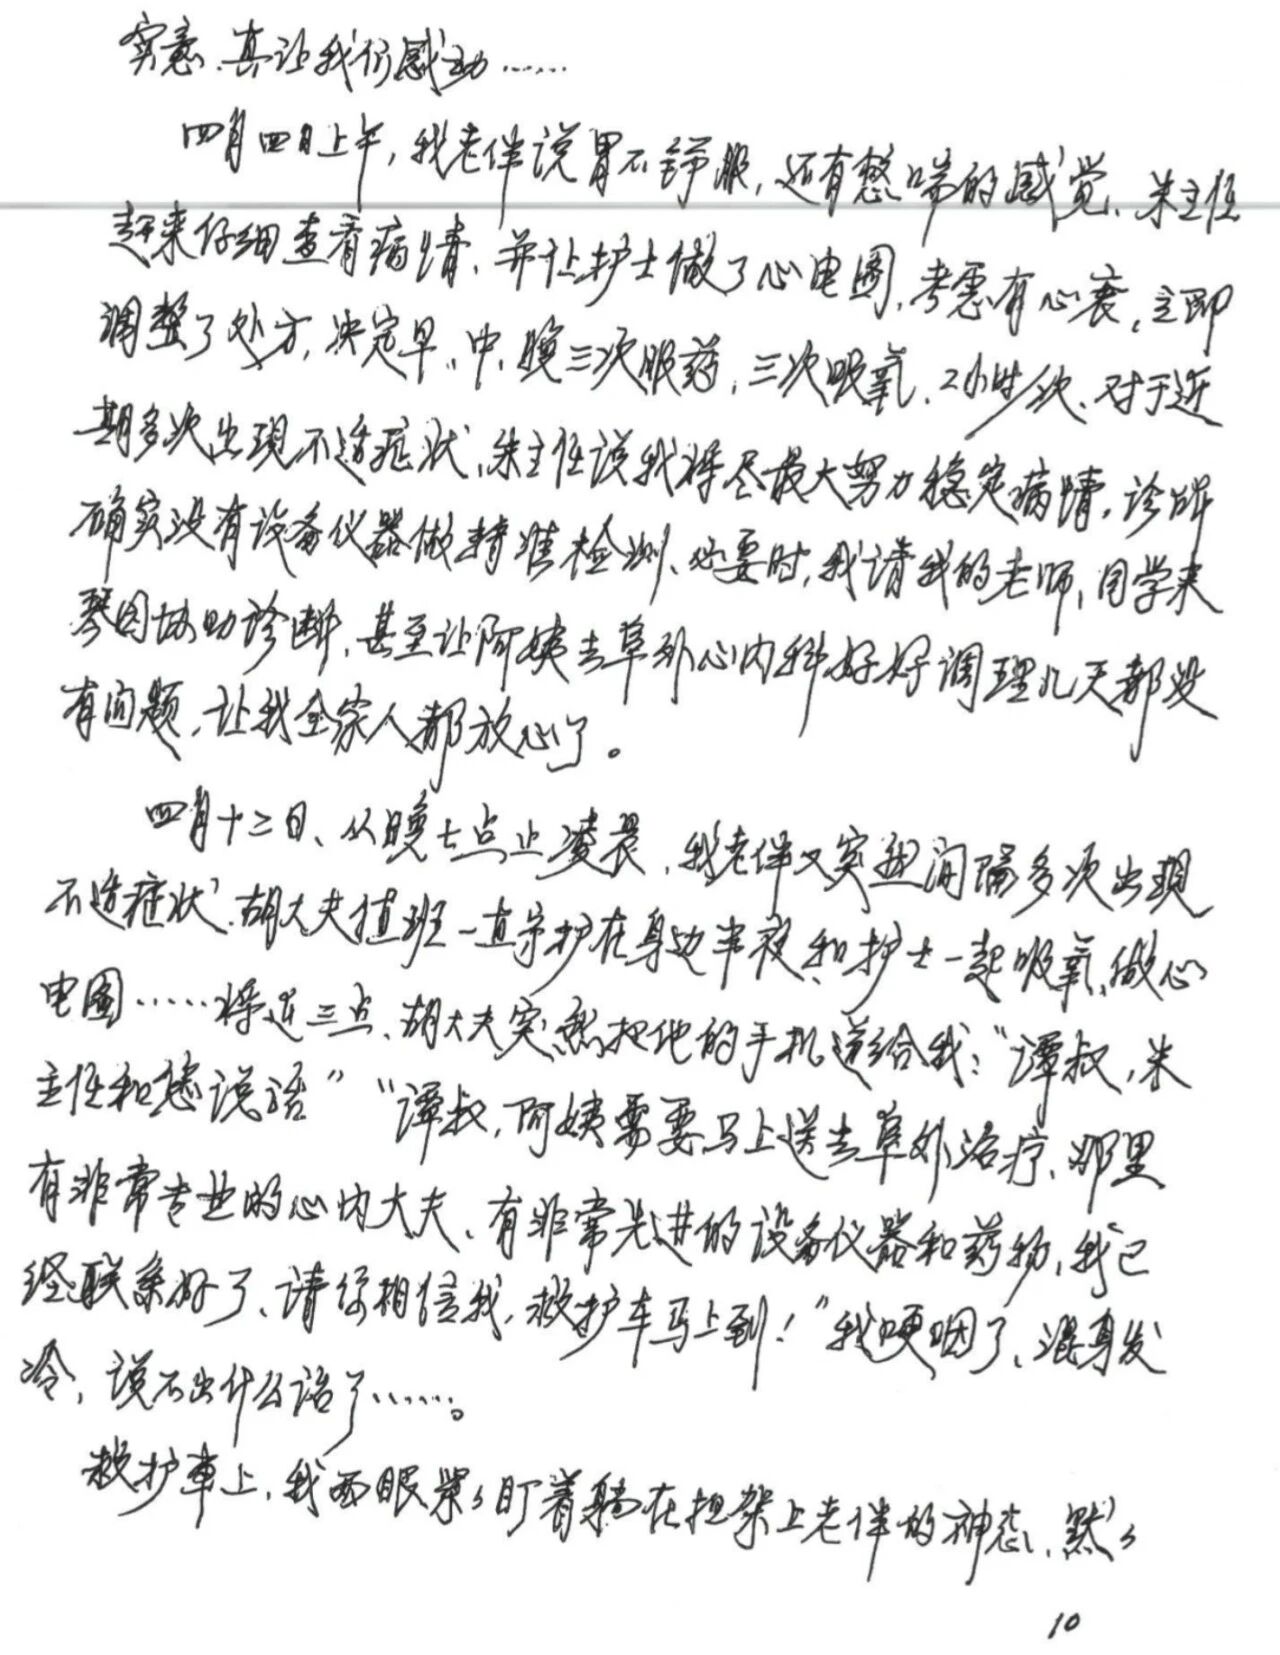 实意、真让我们感动……
四月四日上午，我老伴说胃不舒服，还有憋喘的感觉、朱主任
赶来仔细查看病情、并让护士做了心电图，考虑有心衰，立即
调整了处方，决定早、中、晚三次服药，三次吸氧、2小时/次、对于近
期多次出现不适症状，朱主任说我将尽最大努力稳定病情，诊所
确实没有设备仪器做精准检测、必要时，我请我的老师，同学来
琴园协助诊断，甚至让阿姨去阜外心内科好好调理几天都没
有问题，让我全家人都放心了。
四月十二日、从晚七点止凌晨，我老伴又突然间隔多次出现
不适症状，胡大夫值班一直守护在身边半夜和护士一起吸氧、做心
电图……将近三点、胡大夫突然把他的手机递给我：“谭叔，朱
主任和您说话”“谭叔，阿姨需要马上送去阜外治疗、那里
有非常专业的心内大夫、有非常先进的设备仪器和药物，我已
经联系好了、请您相信我，救护车马上到！”我哽咽了、混身发
冷，说不出什么话了……。
救护车上，我两眼紧紧盯着躺在担架上老伴的神态、默々
10